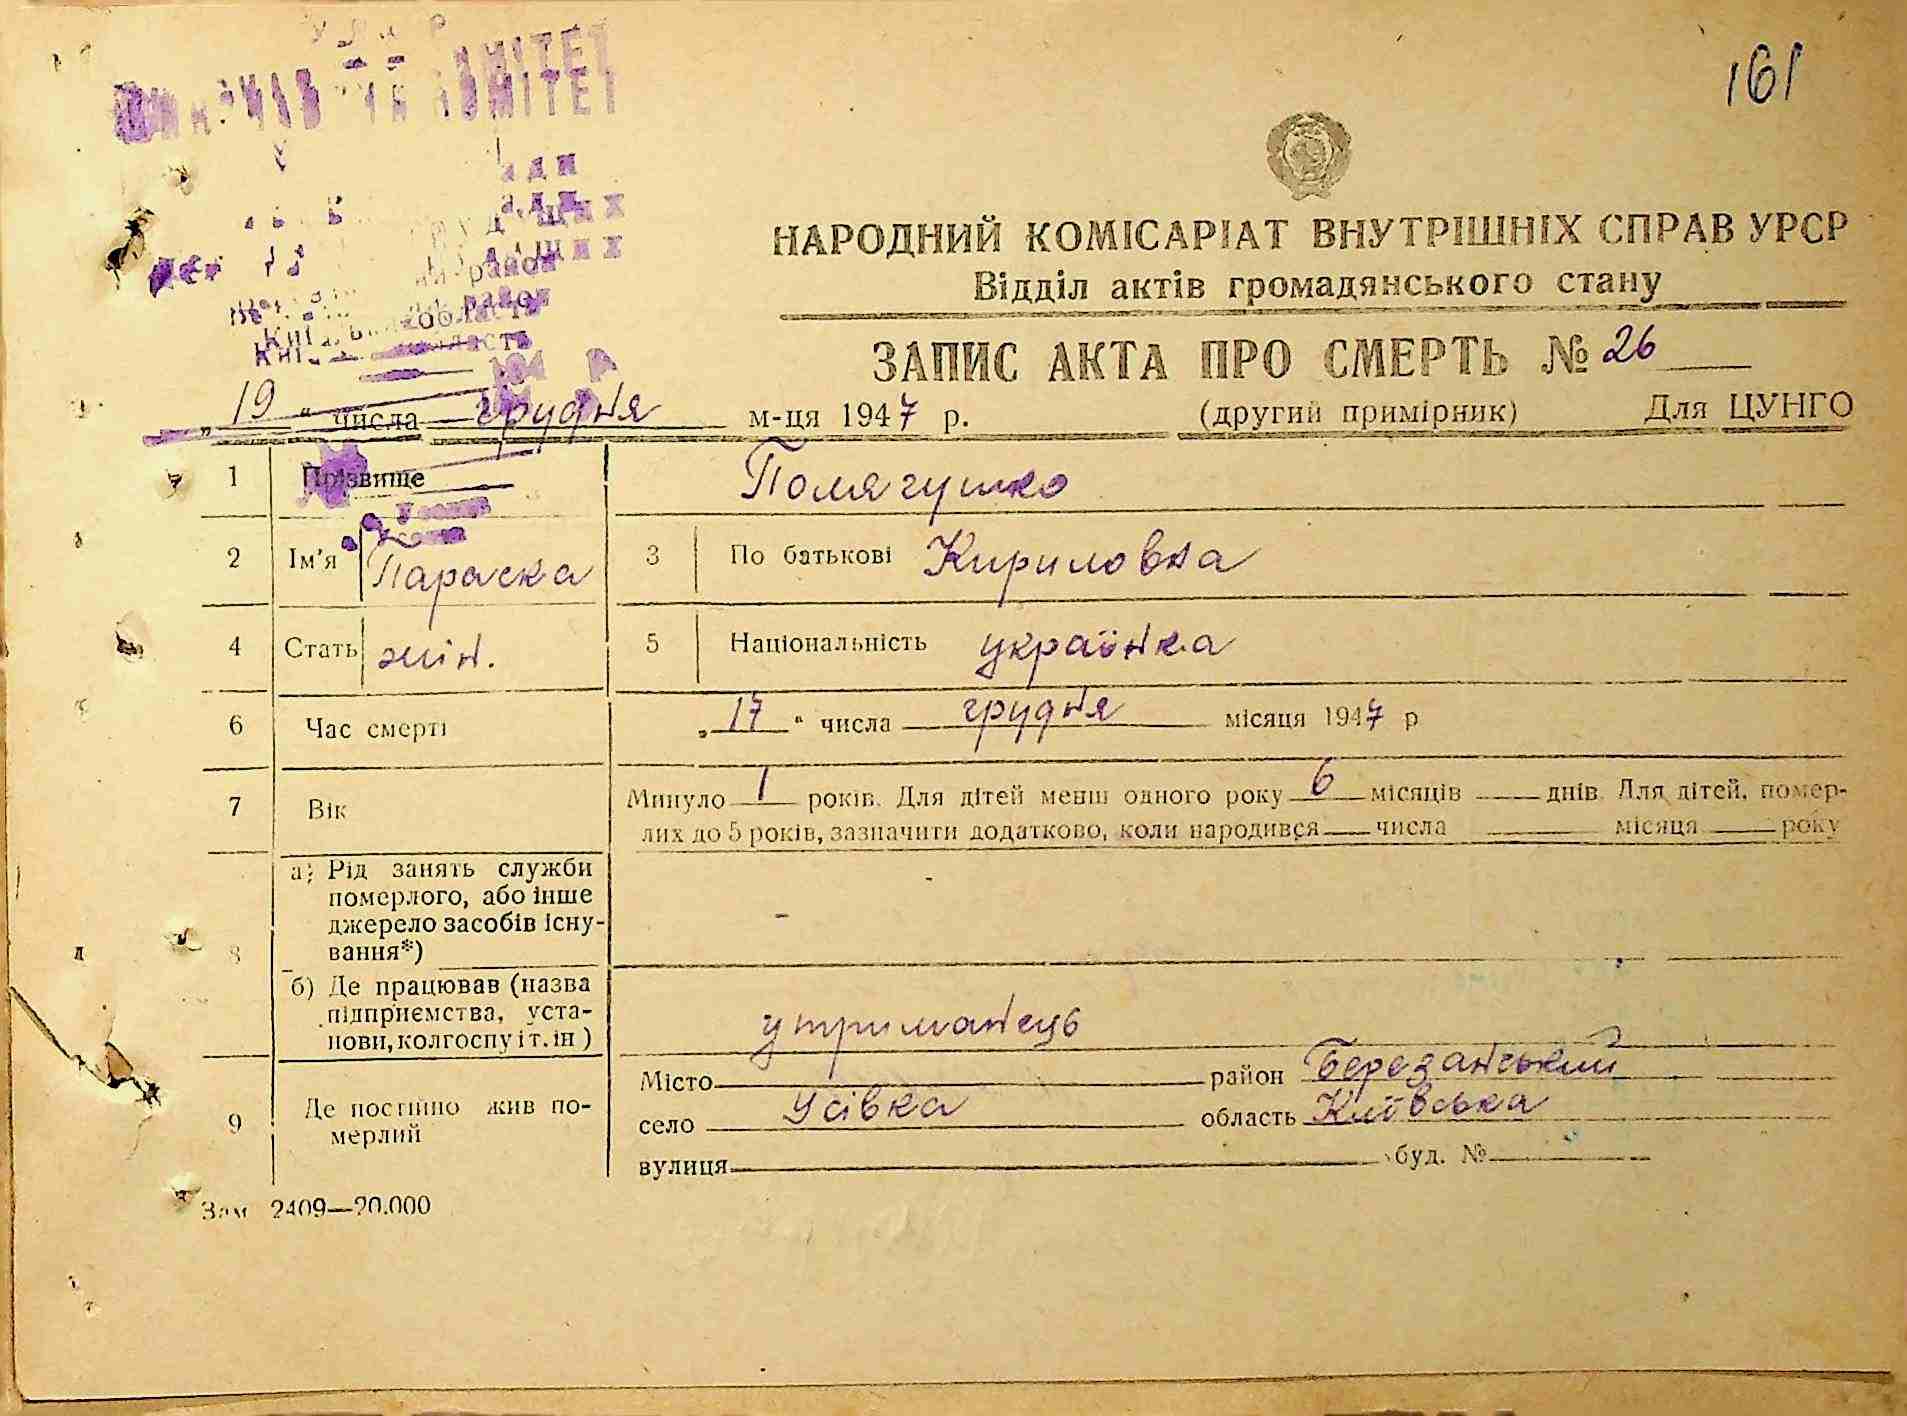 161
КОМІТЕТ
НАРОДНИЙ КОМІСАРІАТ ВНУТРІШНІХ СПРАВ УРСР
Відділ актів громадянського стану
ЗАПИС АКТА ПРО СМЕРТЬ № 26
„19“ числа грудня м-ця 1947 р. (другий примірник) Для ЦУНГО
1 Прізвище Полягушко
2 Ім'я Параска 3 По батькові Кириловна
4 Стать жін. 5 Національність українка
6 Час смерті „17“ числа грудня місяця 1947 р
7 Вік Минуло 1 років. Для дітей менш одного року 6 місяців днів. Для дітей, помер-
лих до 5 років, зазначити додатково, коли народився числа місяця року
8 а) Рід занять служби
померлого, або інше
джерело засобів існу-
вання*) -
б) Де працював (назва
підприємства, уста-
нови, колгоспу і т. ін) утриманець
9 Де постійно жив по-
мерлий
Місто район Березанський
село Усівка область Київська
вулиця буд. №
Зам 2409—20.000